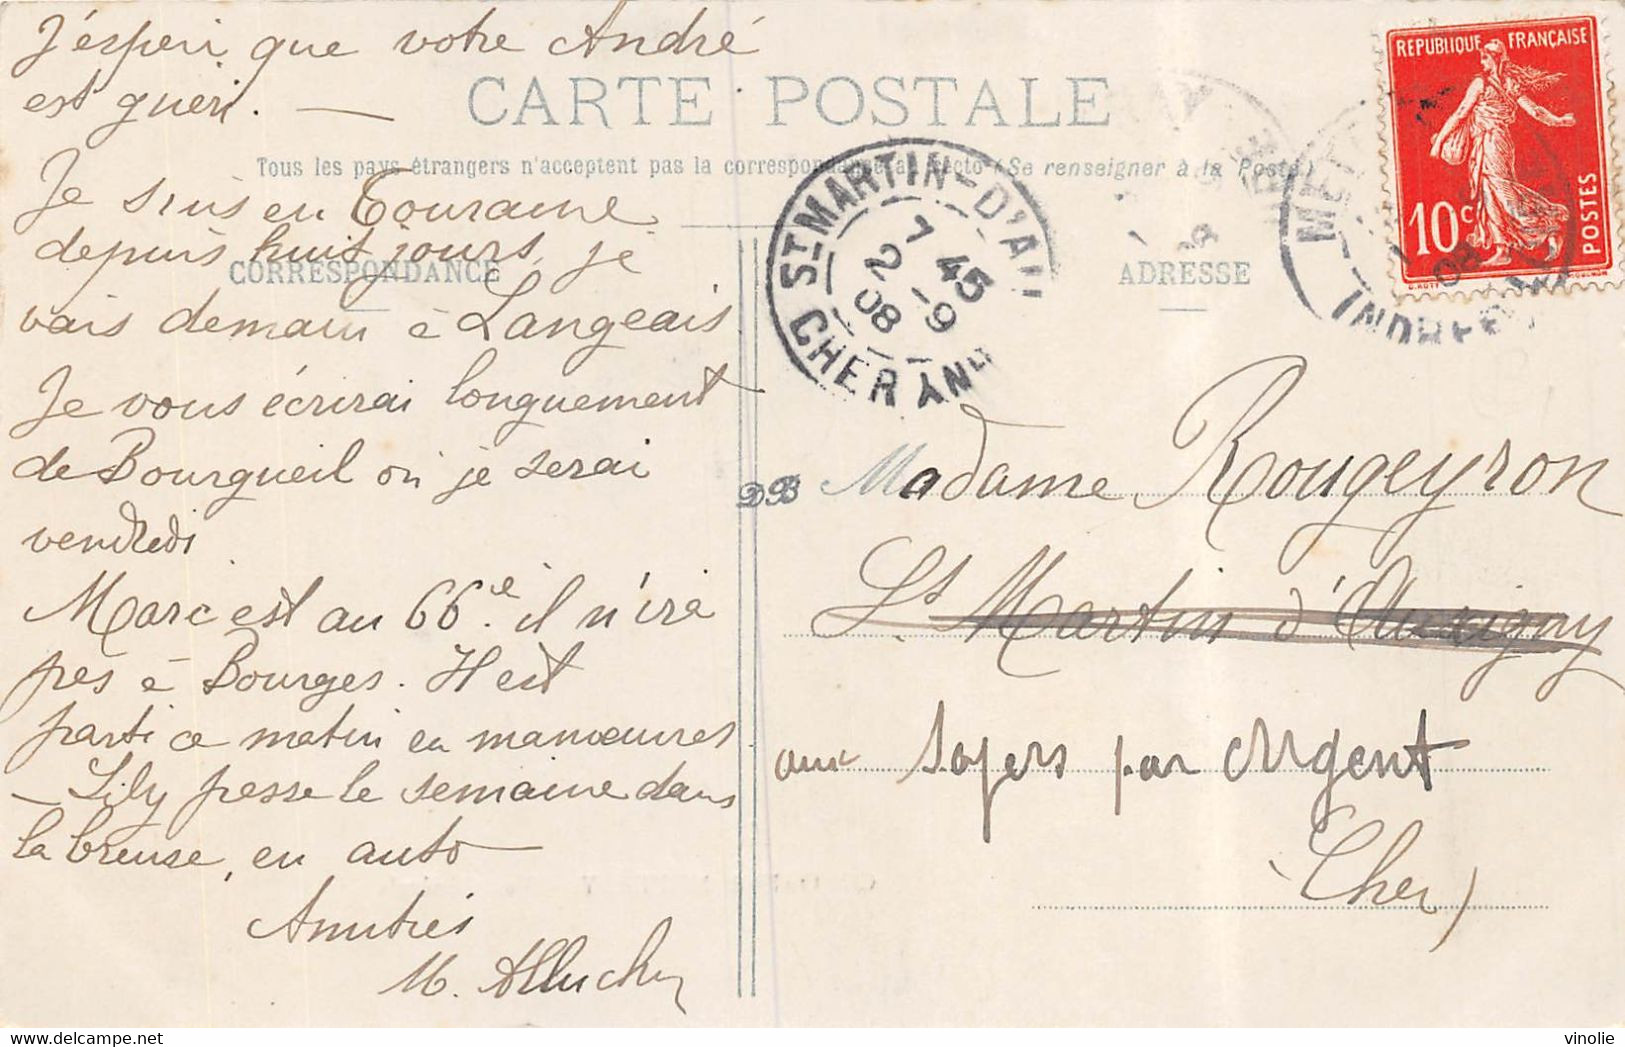 J'espère que votre André
est guéri. —
CARTE POSTALE
Tous les pays étrangers n'acceptent pas la correspondance au recto (Se renseigner à la Poste)
Je suis en Touraine
depuis huit jours, je
CORRESPONDANCE
vais demain à Langeais
Je vous écrirai longuement
de Bourgueil où je serai
vendredi
Marc est au 66e. il n'ira
pas à Bourges. Il est
parti ce matin en manœuvres
— Lily passe la semaine dans
la Creuse, en auto —
Amitiés
M.
DB
ADRESSE
Madame Rougeyron
St Martin d'Auxigny
aux Sayers par Argent
Cher)
REPUBLIQUE FRANÇAISE
10c
POSTES
ST MARTIN-D'AU
7 45
2 -9
08
CHER
INDRE
08
vinolie